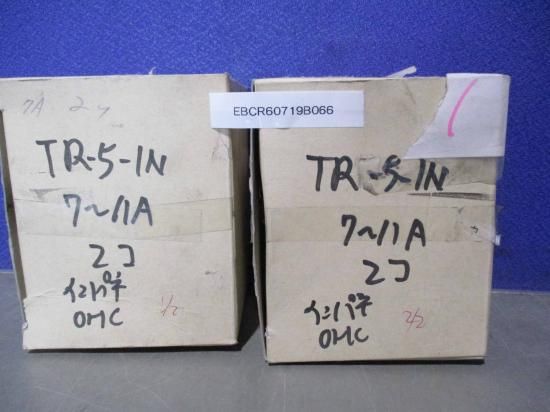 EBCR60719B066
7A 2ケ
TR-5-1N
7~11A
2コ
インパチ
OMC
1/2
TR-5-1N
7~11A
2コ
インパチ
OMC
2/2